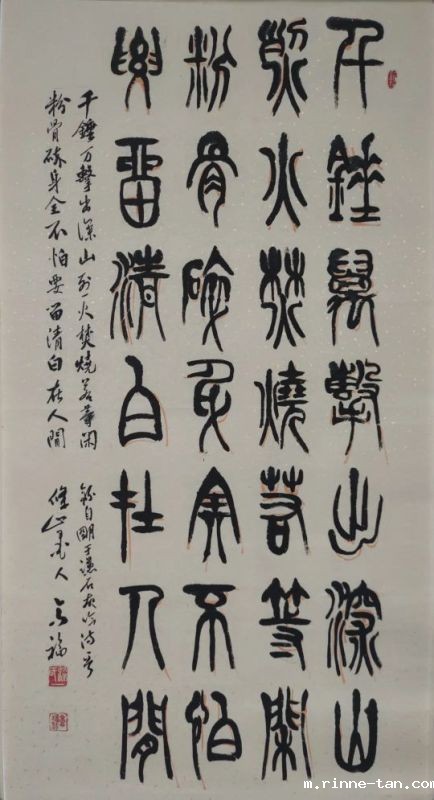 千錘萬擊出深山
烈火焚燒若等閑
粉骨碎身全不怕
要留清白在人間
千錘万擊出深山烈火焚燒若等闲
粉骨碎身全不怕要留清白在人間
錄自明于谦石灰吟诗
m.rinne-tan.com